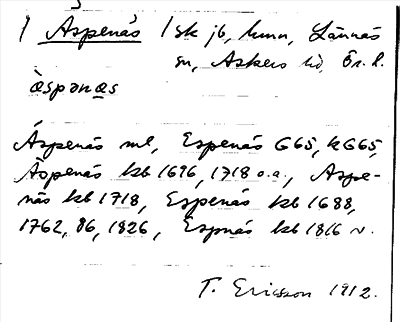 1 Aspenäs 1 sk jb, hmn, Lännäs
sn, Askers hd, Ör. l.
àspənạs
Aspenäs ml, Espenäs G65, kG65,
Aspenäs kb 1696, 1718 o.a., Aspe-
näs kb 1718, Espenäs kb 1688,
1762, 86, 1826, Espnäs kb 1816 v.
T. Ericsson 1912.